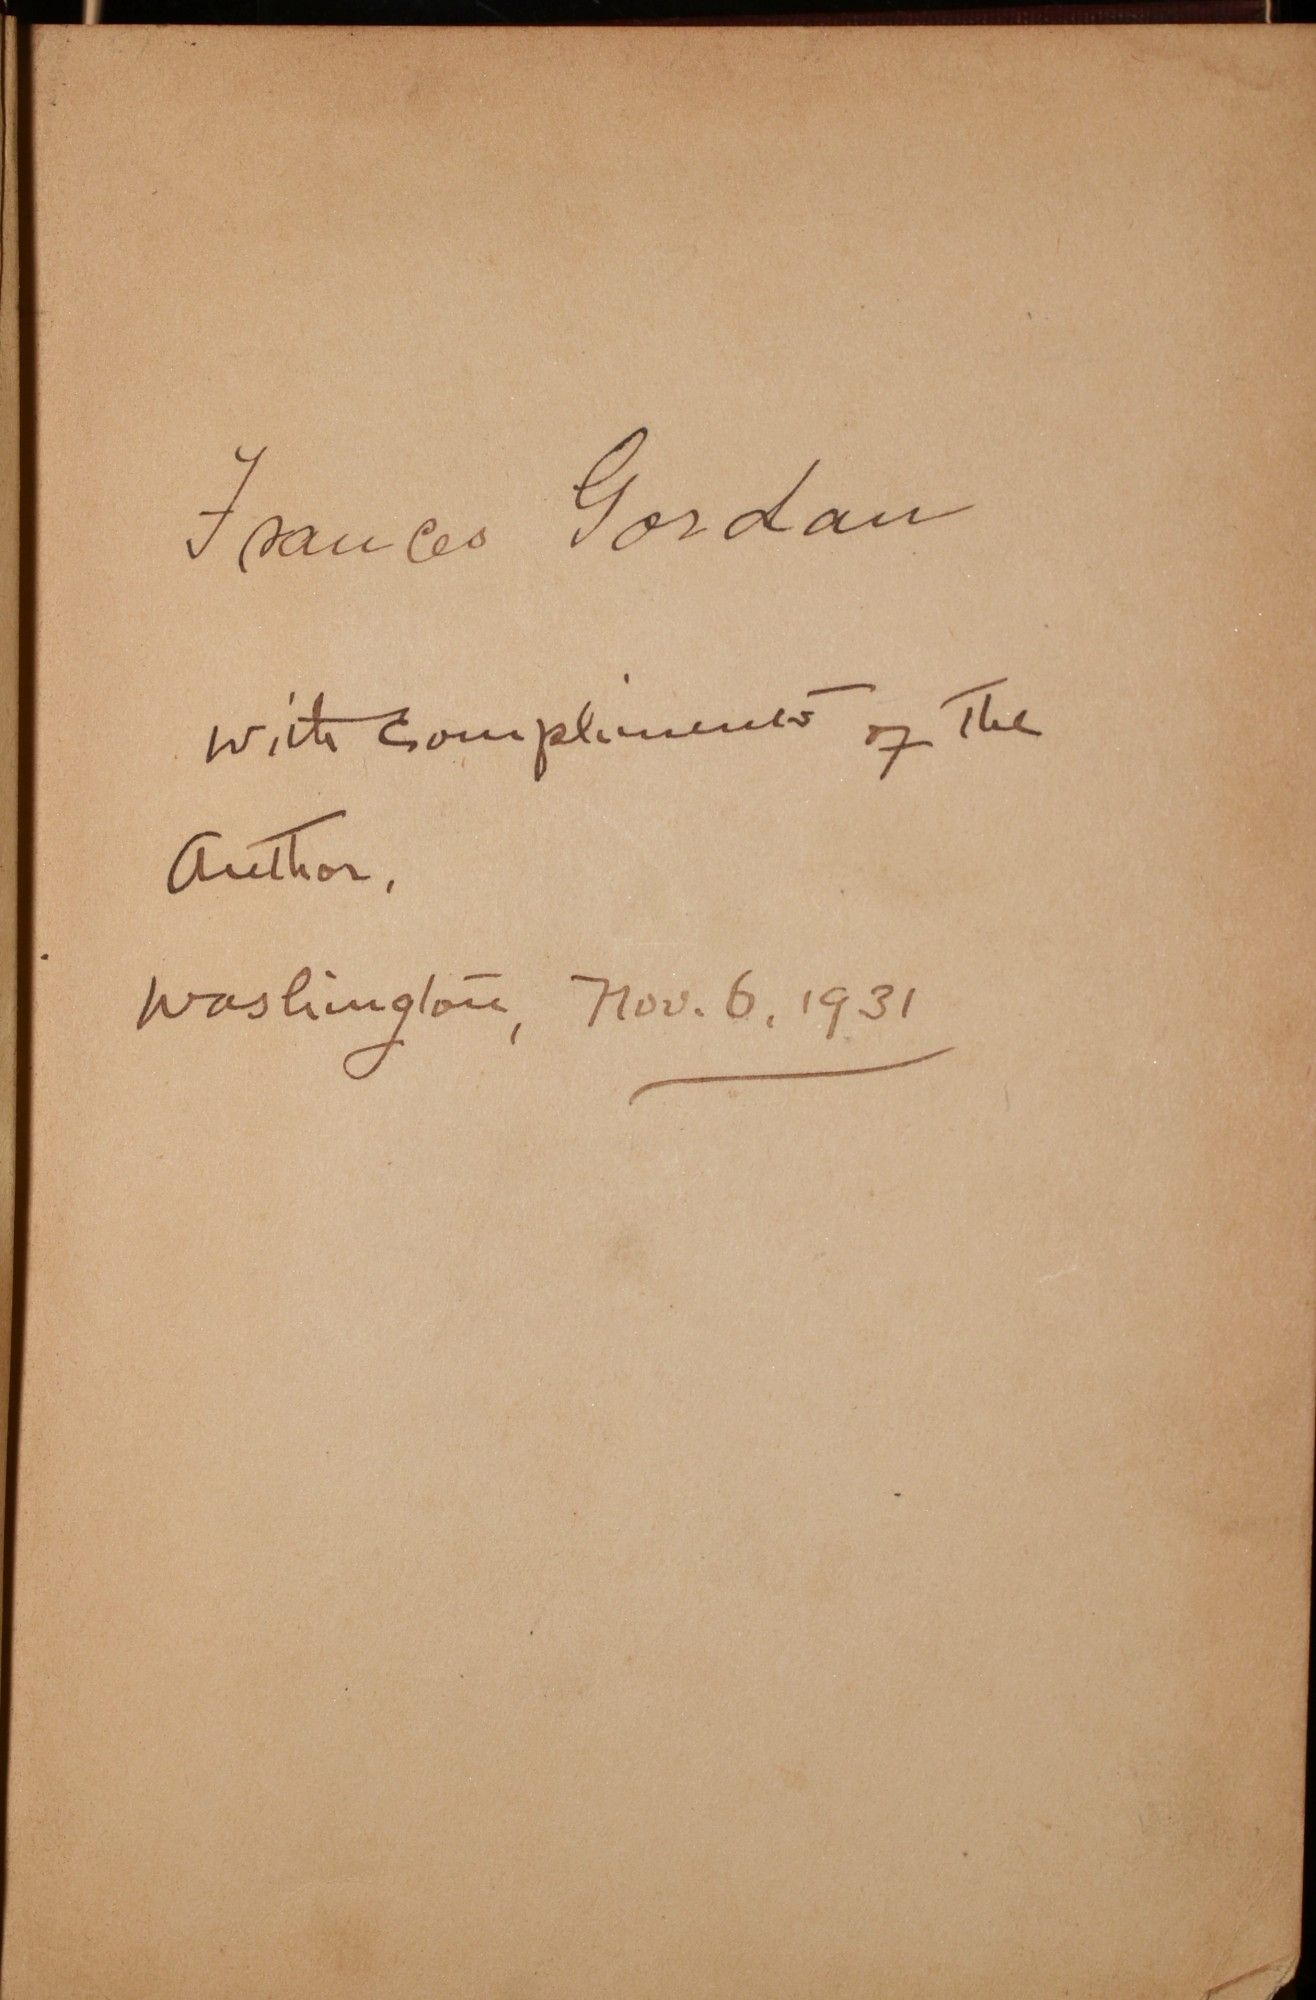 Frances Gordan
with compliments of the
Author.
Washington, Nov. 6, 1931